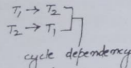 T₁ → T₂
T₂ → T₁
cycle dependency